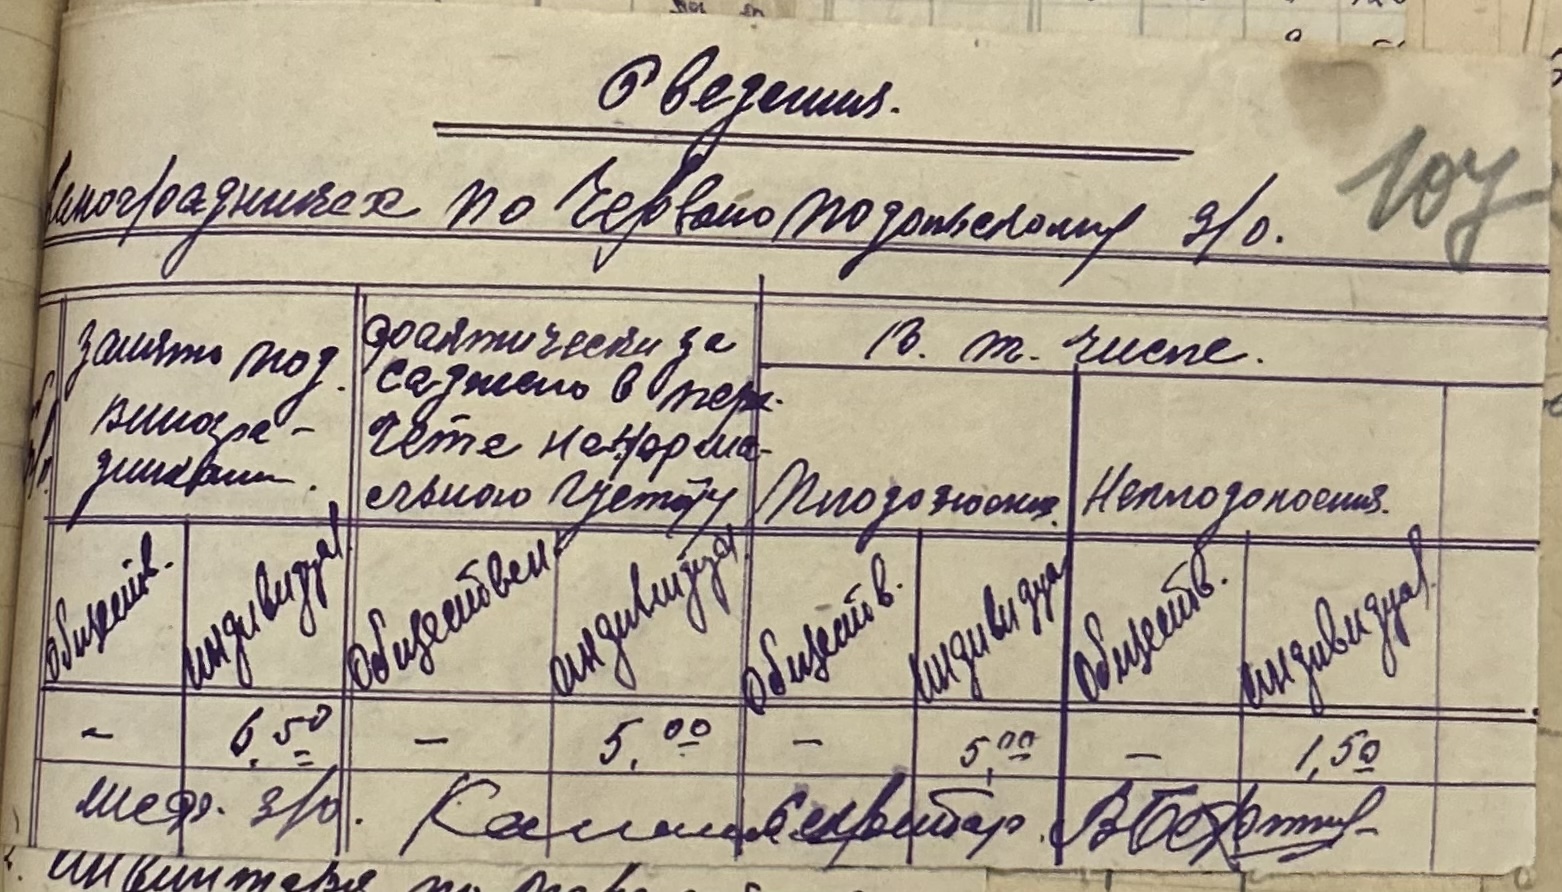 Сведения.
107
виноградниках по Червоно Подольскому з/о.
Занято под. виногра-дниками.
фактически за саджено в пере-чете на норма-ельного густоту
В. т. числе.
Плодоносящ.
Неплодоносящ.
Обществ.
индивидуал.
Обществен.
индивидуал.
Обществ.
индивидуа
Обществ.
индивидуал.
-
6,50
-
5,00
-
5,00
-
1,50
з/о.
Секретар.
инвентаря по